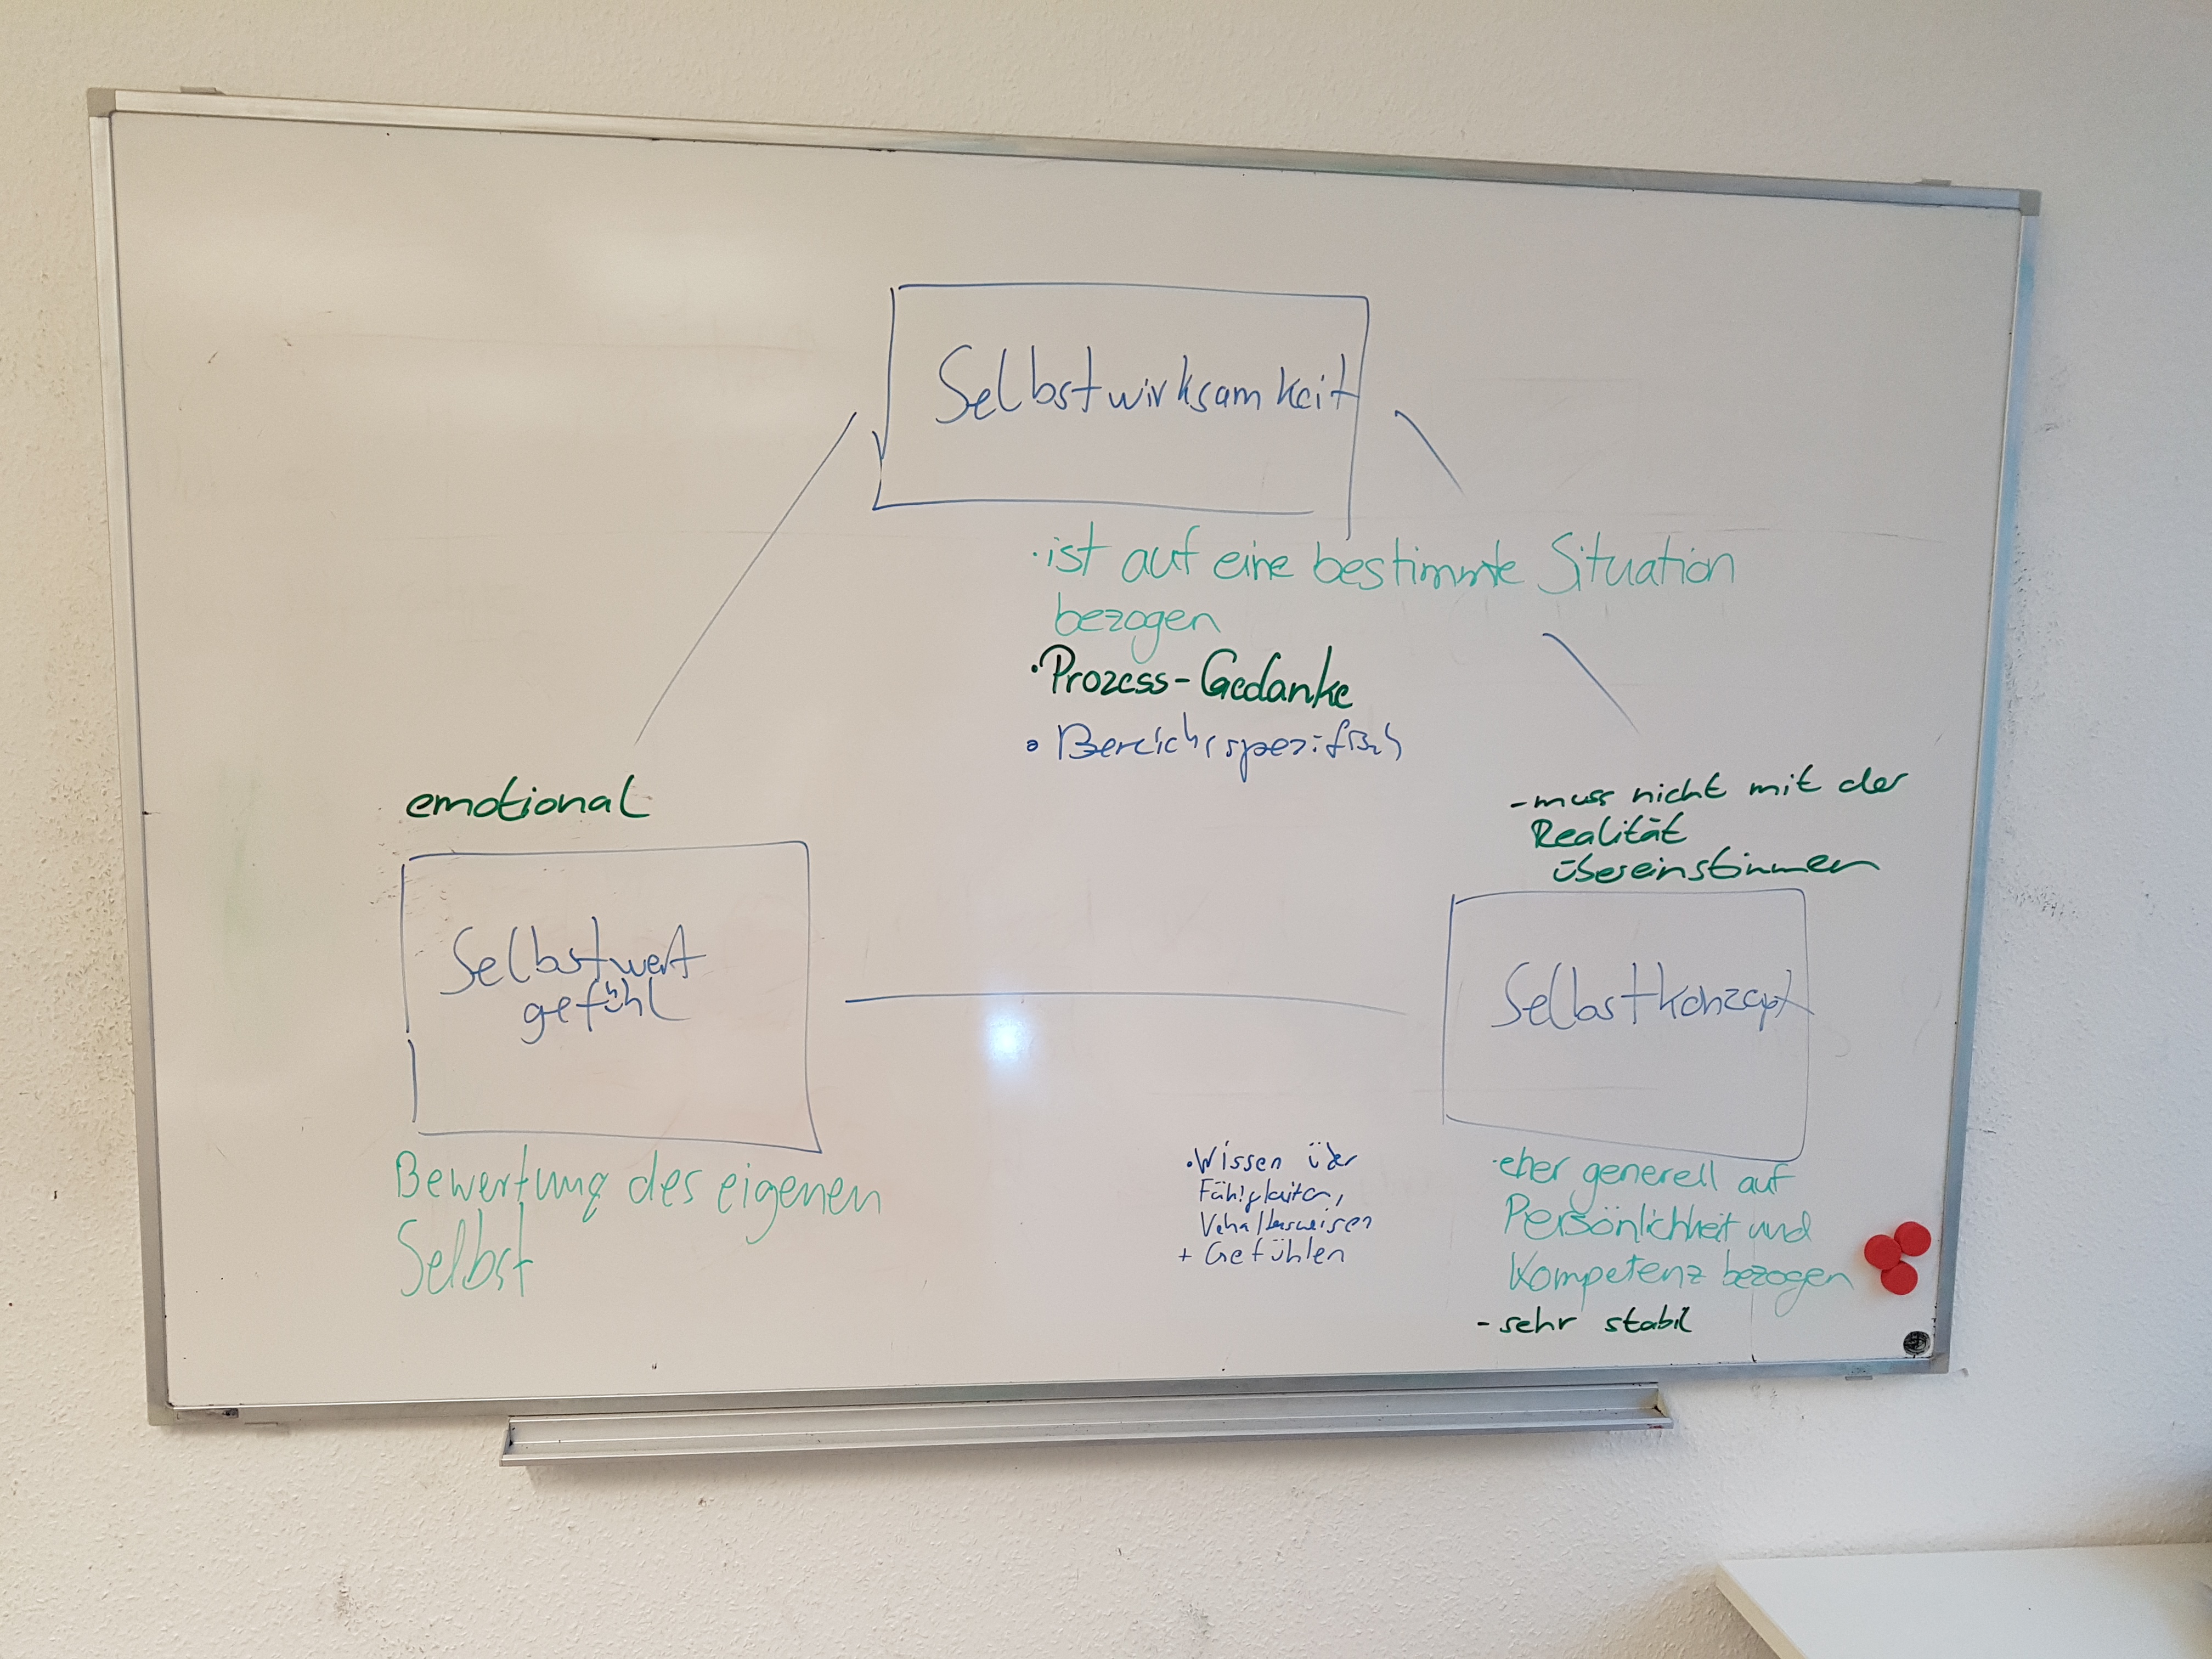 Selbstwirksamkeit
· ist auf eine bestimmte Situation
bezogen
· Prozess-Gedanke
• Bereichsspezifisch
emotional
Selbstwert
gefühl
Bewertung des eigenen
Selbst
- muss nicht mit der
Realität
übereinstimmen
Selbstkonzept
• Wissen über
Fähigkeiten,
Verhaltensweisen
+ Gefühlen
· eher generell auf
Persönlichkeit und
Kompetenz bezogen
- sehr stabil